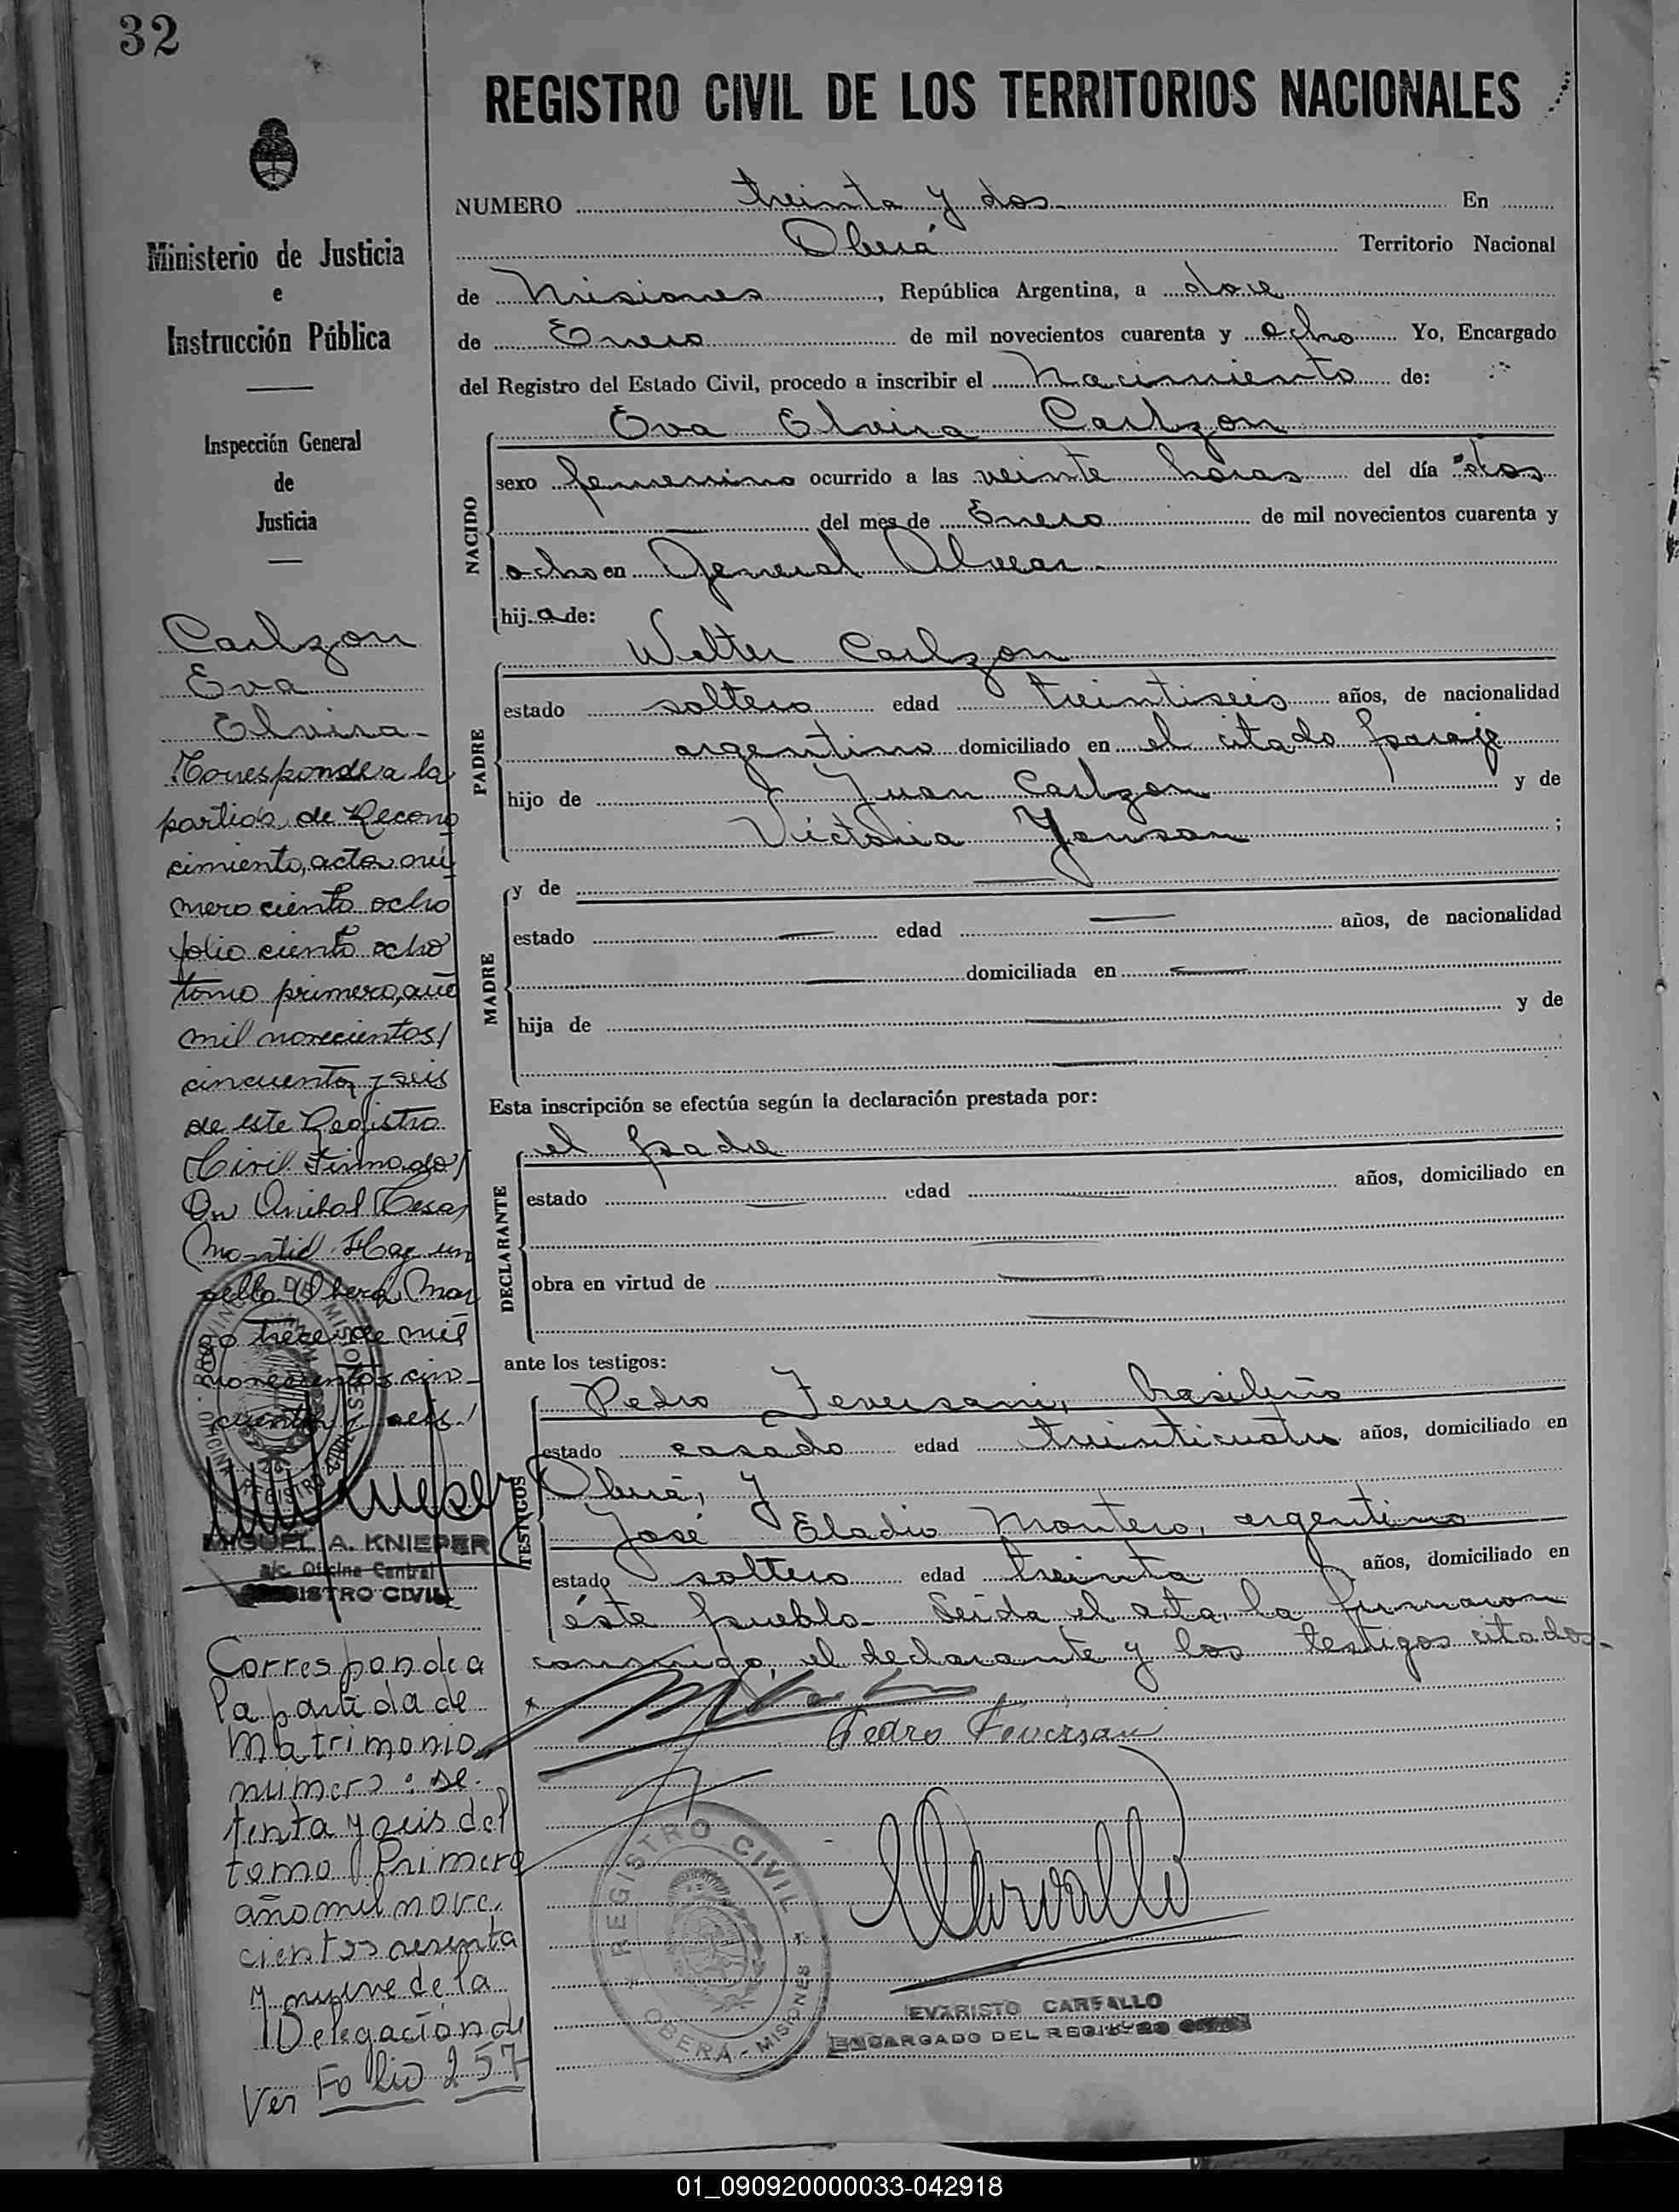 32
REGISTRO CIVIL DE LOS TERRITORIOS NACIONALES
Ministerio de Justicia
e
Instrucción Pública
Inspección General
de
Justicia
Carlzon
Eva
Elvira-
Corresponde a la
partida de Recono
cimiento, acta nú
mero ciento ocho
folio ciento ocho
tomo primero, año
mil novecientos
cincuenta y seis
de este Registro
Civil Firmado
Anibal Cesar
Hay un
sello Oberá, Mar
zo trece de mil
novecientos cin-
cuenta y seis.
MIGUEL A. KNIEPER
a/c. Oficina Central
REGISTRO CIVIL
Corresponde a
la partida de
Matrimonio
número: se
tenta y seis del
tomo Primero
año mil nove
cientos sesenta
y nueve de la
Delegación de
Ver Folio 257
NUMERO treinta y dos En
Oberá Territorio Nacional
de Misiones, República Argentina, a doce
de Enero de mil novecientos cuarenta y ocho Yo, Encargado
del Registro del Estado Civil, procedo a inscribir el Nacimiento de:
NACIDO
Eva Elvira Carlzon
sexo femenino ocurrido a las veinte horas del día dos
del mes de Enero de mil novecientos cuarenta y
ocho en General Alvear
hij a de:
PADRE
Walter Carlzon
estado soltero edad treintiseis años, de nacionalidad
argentino domiciliado en el citado paraje
hijo de Juan Carlzon y de
Victoria Yonson ;
MADRE
y de
estado edad años, de nacionalidad
domiciliada en
hija de y de
Esta inscripción se efectúa según la declaración prestada por:
DECLARANTE
el padre
estado edad años, domiciliado en
obra en virtud de
ante los testigos:
TESTIGOS
Pedro Feversani, brasileño
estado casado edad treinticuatro años, domiciliado en
Oberá, y
José Eladio Montero, argentino
estado soltero edad treinta años, domiciliado en
éste pueblo- Leída el acta, la firmaron
conmigo, el declarante y los testigos citados-
Pedro Feversani
Carvallo
REGISTRO CIVIL
OBERÁ - MISIONES
EVARISTO CARVALLO
ENCARGADO DEL REGISTRO CIVIL
01_090920000033-042918